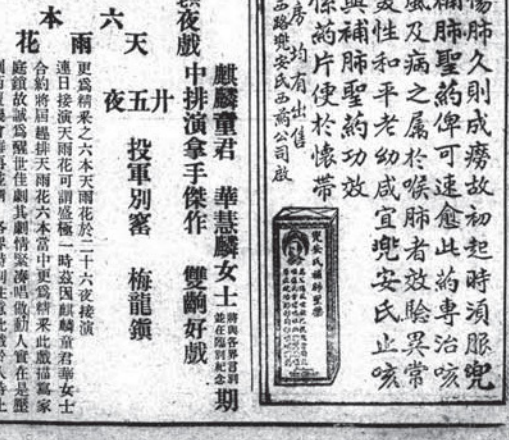 傷肺久則成癆故初起時須服兜
肺聖葯俾可速愈此葯專治咳
風及病之屬於喉肺者效騐異常
性和平老幼咸宜兜安氏止咳
補肺聖葯功效
葯片便於懷帶
房均有出售
西路兜安氏西葯公司啟
兜安氏補肺聖藥
麒麟童君 華慧麟女士 將與各界言別 並在臨別紀念 期
夜戲中排演拿手傑作 雙齣好戲
廿五夜 投軍別窰 梅龍鎮
六本天雨花
更爲精釆之六本天雨花於二十六夜接演
連日接演天雨花可謂盛極一時茲因麒麟童君華女士
合約將屆趕排天雨花六本當中更爲精釆此戲描寫家
庭鎖故誠爲醒世佳劇其劇情緊湊唱做動人實在是壓